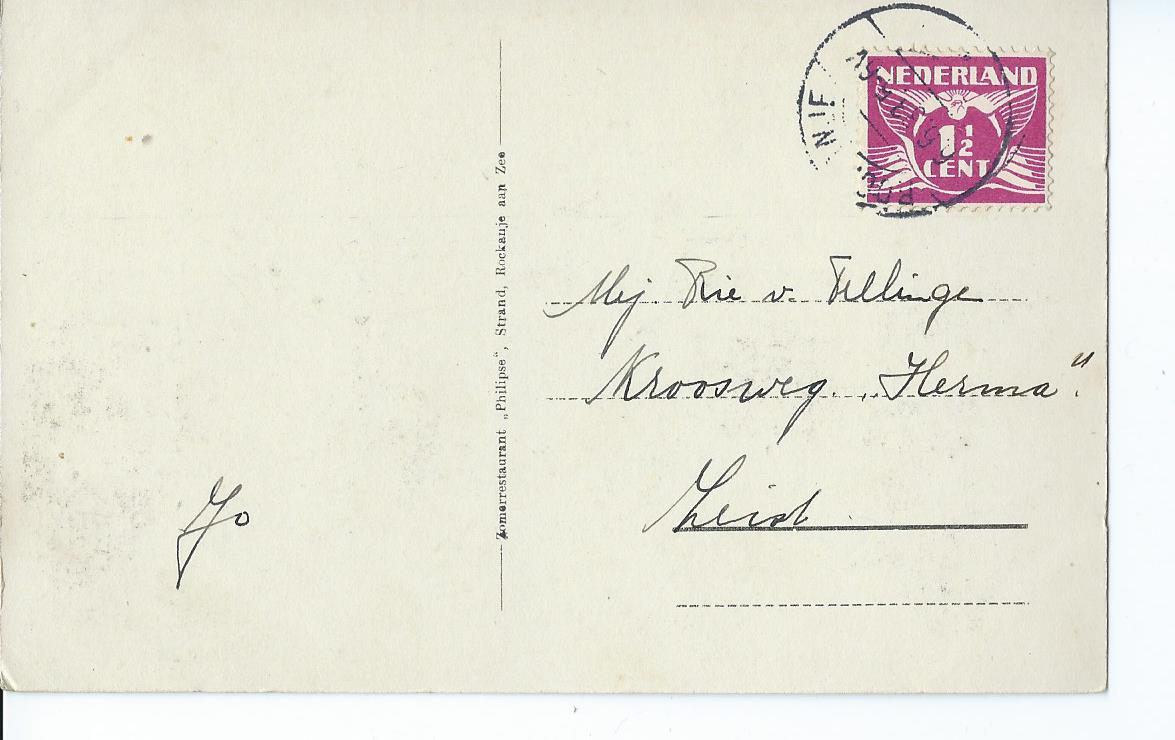 NEDERLAND
1 1/2
CENT
Zomerrestaurant „Philipse“, Strand, Rockanje aan Zee
Mej. Rie v. Tellinge
Kroosweg „Herma“.
Zeist
Jo